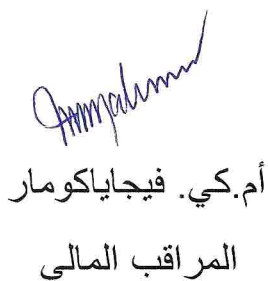 أم.كي. فيجاياكومار
المراقب المالى